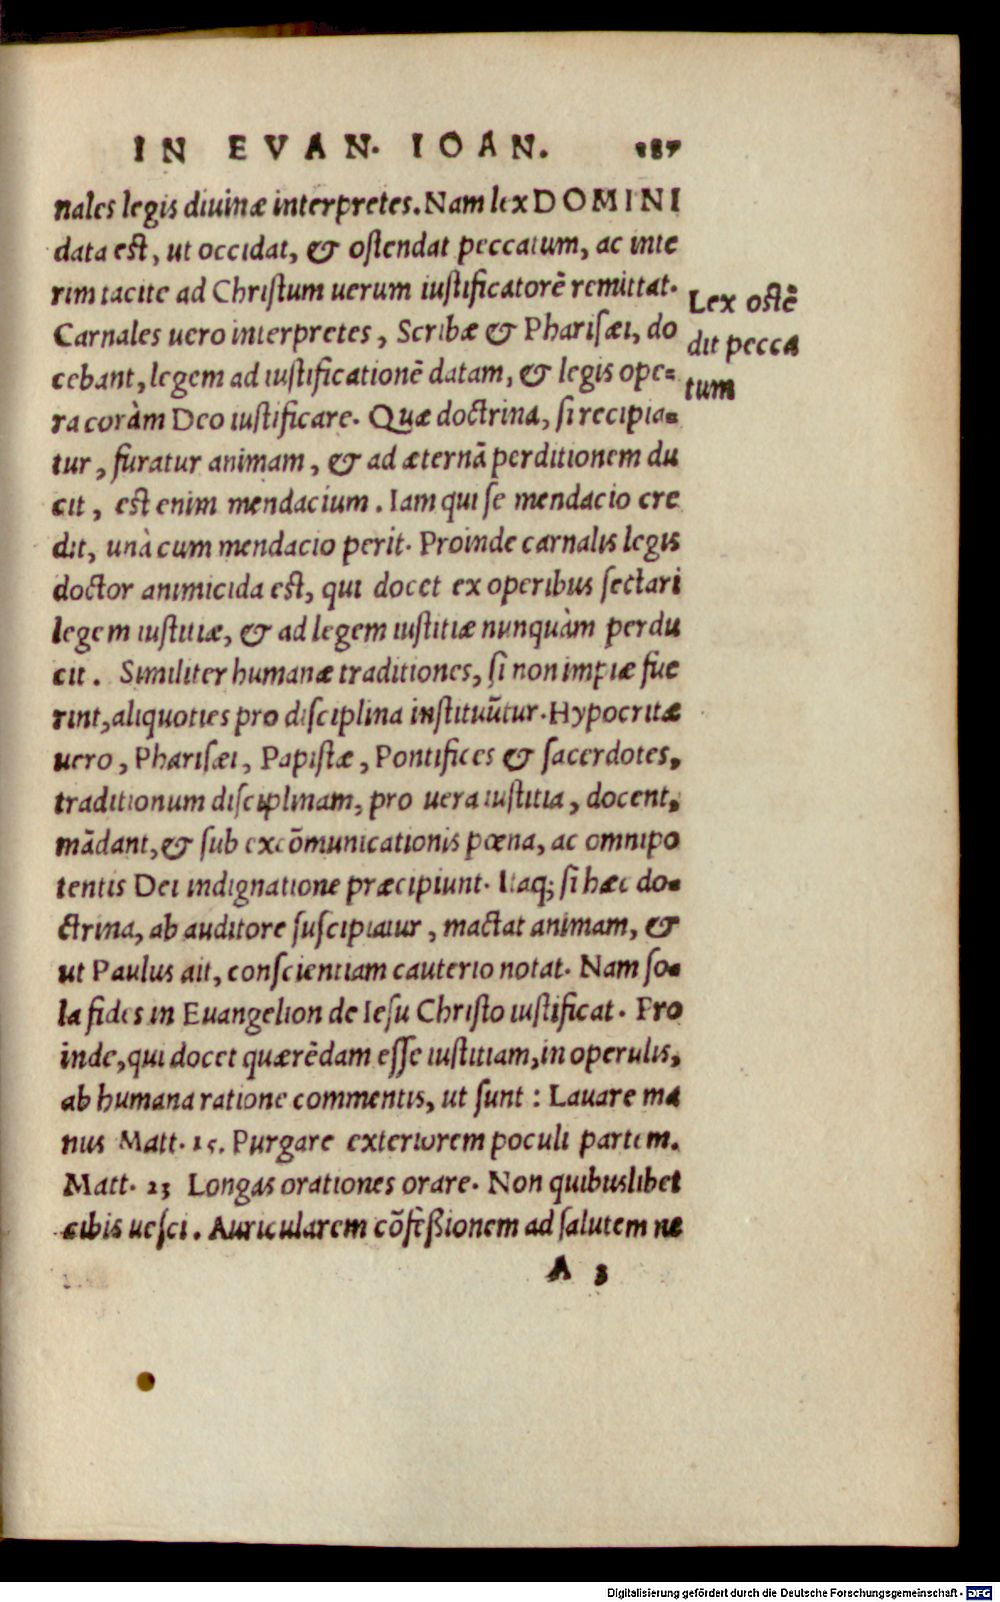 IN EVAN. IOAN. 187
nales legis diuinæ interpretes. Nam lex DOMINI
data est, ut occidat, & ostendat peccatum, ac inte
rim tacite ad Christum uerum iustificatorē remittat.
Carnales uero interpretes, Scribæ & Pharisæi, do
cebant, legem ad iustificationē datam, & legis ope-
ra coràm Deo iustificare. Quæ doctrina, si recipia-
tur, furatur animam, & ad æternā perditionem du
cit, est enim mendacium. Iam qui se mendacio cre
dit, unà cum mendacio perit. Proinde carnalis legis
doctor animicida est, qui docet ex operibus sectari
legem iustitiæ, & ad legem iustitiæ nunquàm perdu
cit. Similiter humanæ traditiones, si non impiæ fue
rint, aliquoties pro disciplina instituūtur. Hypocritæ
uero, Pharisæi, Papistæ, Pontifices & sacerdotes,
traditionum disciplinam, pro uera iustitia, docent,
mādant, & sub excōmunicationis pœna, ac omnipo
tentis Dei indignatione præcipiunt. Itaq; si hæc do-
ctrina, ab auditore suscipiatur, mactat animam, &
ut Paulus ait, conscientiam cauterio notat. Nam so-
la fides in Euangelion de Iesu Christo iustificat. Pro
inde, qui docet quærēdam esse iustitiam, in operulis,
ab humana ratione commentis, ut sunt: Lauare ma
nus Matt. 15. Purgare exteriorem poculi partem.
Matt. 23 Longas orationes orare. Non quibuslibet
cibis uesci. Auricularem cōfeßionem ad salutem ne
A 3
Lex ostē
dit pecca
tum
Digitalisierung gefördert durch die Deutsche Forschungsgemeinschaft - DFG